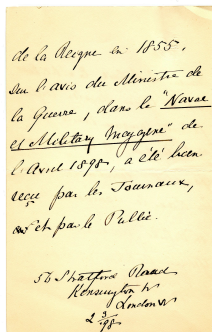 de la Reigne en 1855.
du Ministre de
la Guerre, dans le "Naval
et Military Magazine" de
l'Avril 1898, a été bien
reçu par les Journaux,
et par le Public.
56 Stratford Road
Kensington W
London W
2/3/98